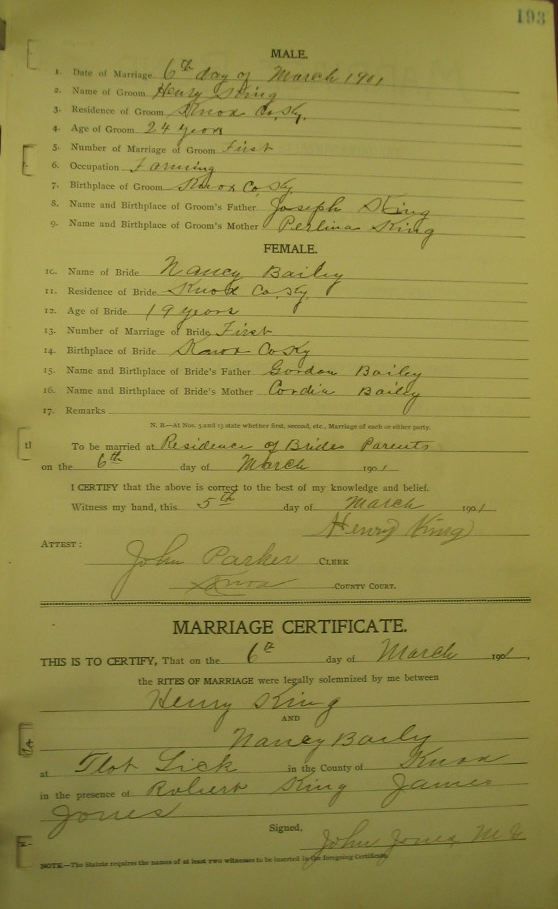 193
MALE.
1. Date of Marriage 6th day of March 1901
2. Name of Groom Henry King
3. Residence of Groom Knox Co, Ky.
4. Age of Groom 24 years
5. Number of Marriage of Groom First
6. Occupation Farming
7. Birthplace of Groom Knox Co, Ky
8. Name and Birthplace of Groom's Father Joseph King
9. Name and Birthplace of Groom's Mother Perlina King
FEMALE.
10. Name of Bride Nancy Bailey
11. Residence of Bride Knox Co, Ky.
12. Age of Bride 19 years
13. Number of Marriage of Bride First
14. Birthplace of Bride Knox Co Ky
15. Name and Birthplace of Bride's Father Gordon Bailey
16. Name and Birthplace of Bride's Mother Cordia Bailey
17. Remarks
N. B.—At Nos. 5 and 13 state whether first, second, etc., Marriage of each or either party.
To be married at Residence of Brides Parents
on the 6th day of March 1901
I CERTIFY that the above is correct to the best of my knowledge and belief.
Witness my hand, this 5th day of March 1901
Henry King
ATTEST:
John Parker CLERK
Knox COUNTY COURT.
MARRIAGE CERTIFICATE.
THIS IS TO CERTIFY, That on the 6th day of March 1901,
the RITES OF MARRIAGE were legally solemnized by me between
Henry King
AND
Nancy Baily
at Flat Lick in the County of Knox
in the presence of Robert King James
Jones
Signed,
John Jones, M G
NOTE.—The Statute requires the names of at least two witnesses to be inserted in the foregoing Certificate.